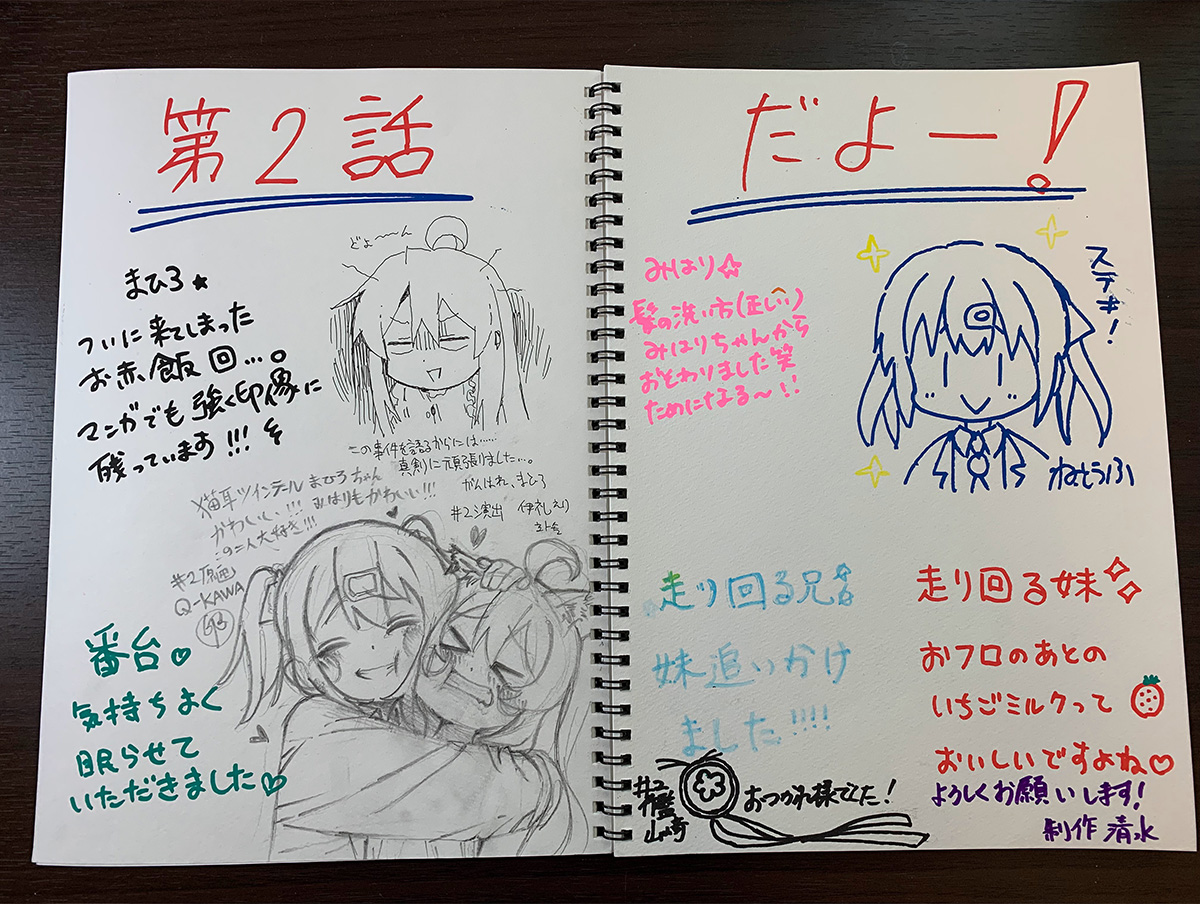 第2話
だよー!
どよ〜〜ん
まひろ★
ついに来てしまった
お赤飯回…。
マンガでも強く印象に
残っています!!!
この事件を語るからには……
真剣に頑張りました…。
がんばれ、まひろ
#2演出
猫耳ツインテールまひろちゃん
かわいい!!! みはりもかわいい!!!
この二人大好き!!!
#2原画
Q-KAWA
番台♡
気持ちよく
眠らせて
いただきました♡
みはり☆
髪の洗い方(正しい)
みはりちゃんから
おそわりました笑
ためになる〜!!
ステキ!
ねとうふ
走り回る兄
妹追いかけ
ました!!!!
走り回る妹
おフロのあとの
いちごミルクって
おいしいですよね♡
#2
おつかれ様でした!
よろしくお願いします!
制作 清水